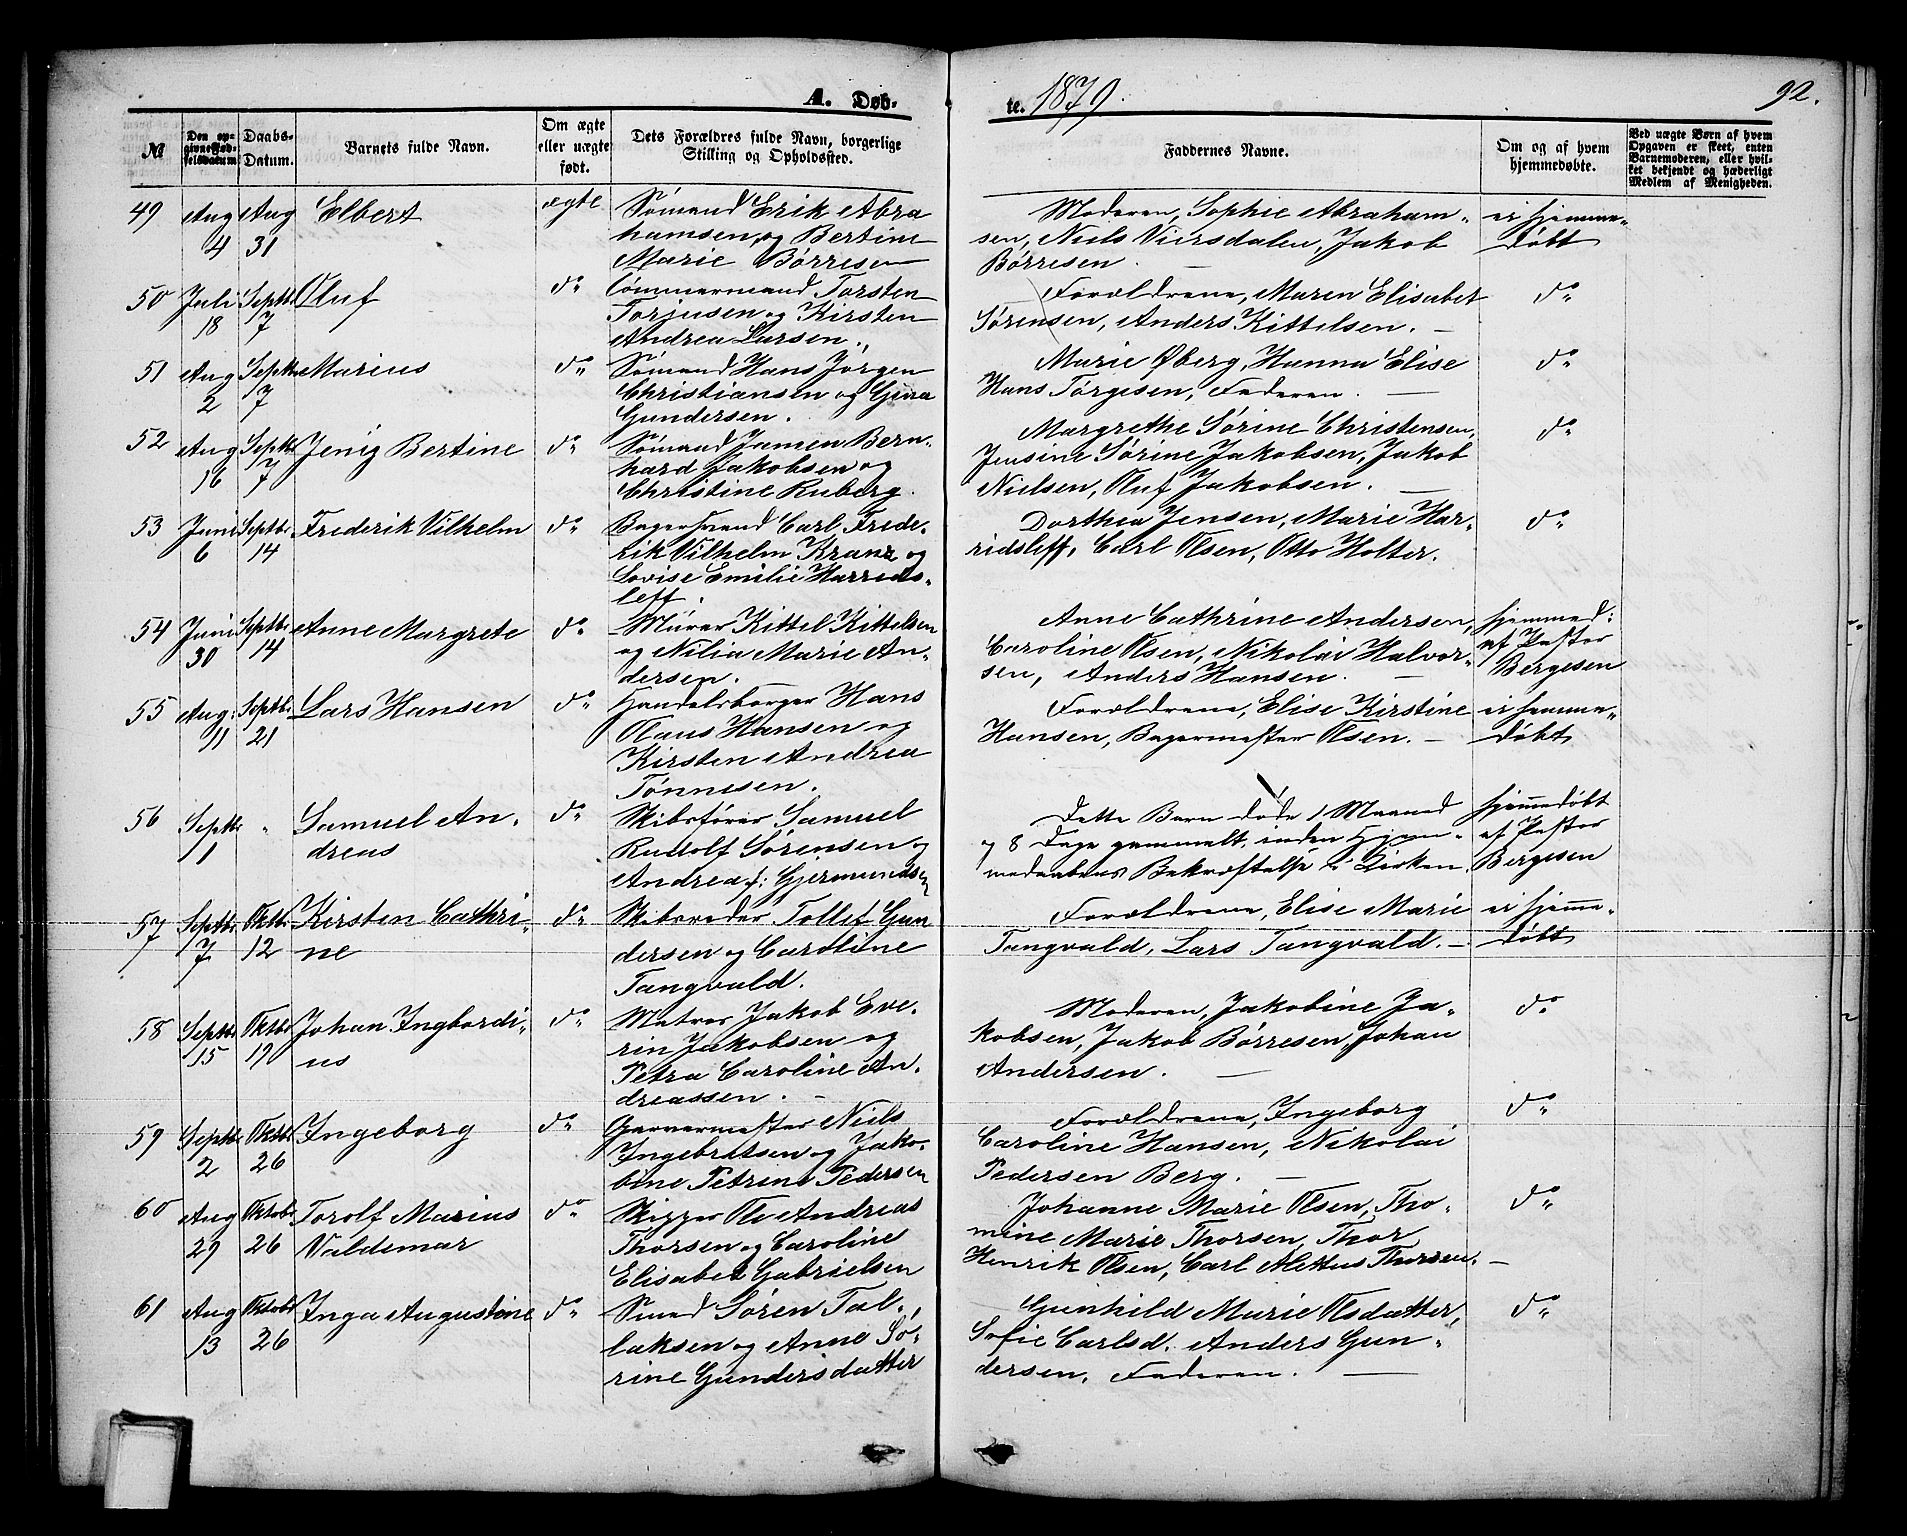 A. Døb- te. 1879. 92.
№
Den opgivne Fødselsdatum
Daabs-Datum.
Barnets fulde Navn.
Om ægte eller uægte født.
Dets Forældres fulde Navn, borgerlige Stilling og Opholdssted.
Faddernes Navne.
Om og af hvem hjemmedøbte.
Ved uægte Børn af hvem Opgaven er skeet, enten Barnemoderen, eller hvilket bekjendt og hæderligt Medlem af Menigheden.
49 Aug 4 Aug 31 Elbert ægte
Sømand Erik Abra
hamsen, og Bertine
Marie Børresen
Moderen, Sophie Abraham-
sen, Niels Viersdalen, Jakob
Børresen.
ei hjemme-
døbt
50 Juli 18 Septb 7 Oluf do
Tømmermand Torsten
Torjusen og Kirsten
Andrea Larsen.
Forældrene, Maren Elisabet
Sørensen, Anders Kittelsen. —
do
51 Aug 2 Septb 7 Marius do
Sømand Hans Jørgen
Christiansen og Gina
Gundersen.
Marie Øberg, Hanna Elise
Hans Tørgesen, Faderen. —
do
52 Aug 16 Septb 7 Jenig Bertine do
Sømand Jamen Bern-
hard Jakobsen og
Christine Ruberg.
Margrethe Sørine Christensen,
Jensine Sørine Jakobsen, Jakob
Nielsen, Oluf Jakobsen. —
do
53 Juni 6 Septbr 14 Frederik Vilhelm do
Bagersvend Carl Frede-
rik Vilhelm Kranz og
Lovise Emilie Harreds-
leff.
Dorthea Jensen, Marie Har-
ridsleff, Carl Olsen, Otto Holter.
do
54 Juni 30 Septbr 14 Anne Margrete do
Murer Kittel Kittelsen
og Nilia Marie An-
dersen. —
Anne Cathrine Andersen,
Caroline Olsen, Nikolai Halvor-
sen, Anders Hansen. —
hjemmed:
af Pastor
Bergesen
55 Aug: 11 Septbr 21 Lars Hansen do
Handelsborger Hans
Olaus Hansen og
Kirsten Andrea
Tønnesen.
Forældrene, Elise Kirstine
Hansen, Bagermester Olsen. —
ei hjemme-
døbt
56 Septbr 1 " Samuel An-
dreas do
Skibsfører Samuel
Rudolf Sørensen og
Andrea f: Gjermundsen
Dette Barn døde 1 Maaned
og 8 Dage gammelt, inden Hjem-
medaabens Bekræftelse i Kirken.
hjemmedøbt
af Pastor
Bergesen
57 Septbr 7 Oktbr 12 Kirsten Cathri-
ne do
Skibsreder Tollef Gun
dersen og Caroline
Tangvald.
Forældrene, Elise Marie
Tangvald, Lars Tangvald. —
ei hjemme-
døbt
58 Septbr 15 Oktbr 19 Johan Ingbordi-
us do
Matros Jakob Eve-
rin Jakobsen og
Petra Caroline An-
dreassen. —
Moderen, Jakobine Ja-
kobsen, Jakob Børresen, Johan
Andersen. —
do
59 Septbr 2 Oktbr 26 Ingeborg do
Garvermester Niels
Ingebretsen og Jako-
bine Petrine Pedersen
Forældrene, Ingeborg
Caroline Hansen, Nikolai
Pedersen Berg. —
do
60 Aug 29 Oktob 26 Torolf Marius
Valdemar do
Skipper Ole Andreas
Thorsen og Caroline
Elisabet Gabrielsen
Johanne Marie Olsen, Tho-
mine Marie Thorsen, Thor
Henrik Olsen, Carl Alettus Thorsen. —
do
61 Aug 13 Oktobr 26 Inga Augustine do
Smed Søren Tal-
laksen og Anne Sø-
rine Gundersdatter
Gunhild Marie Olsdatter,
Sofie Carlsd. Anders Gun-
dersen, Faderen. —
do